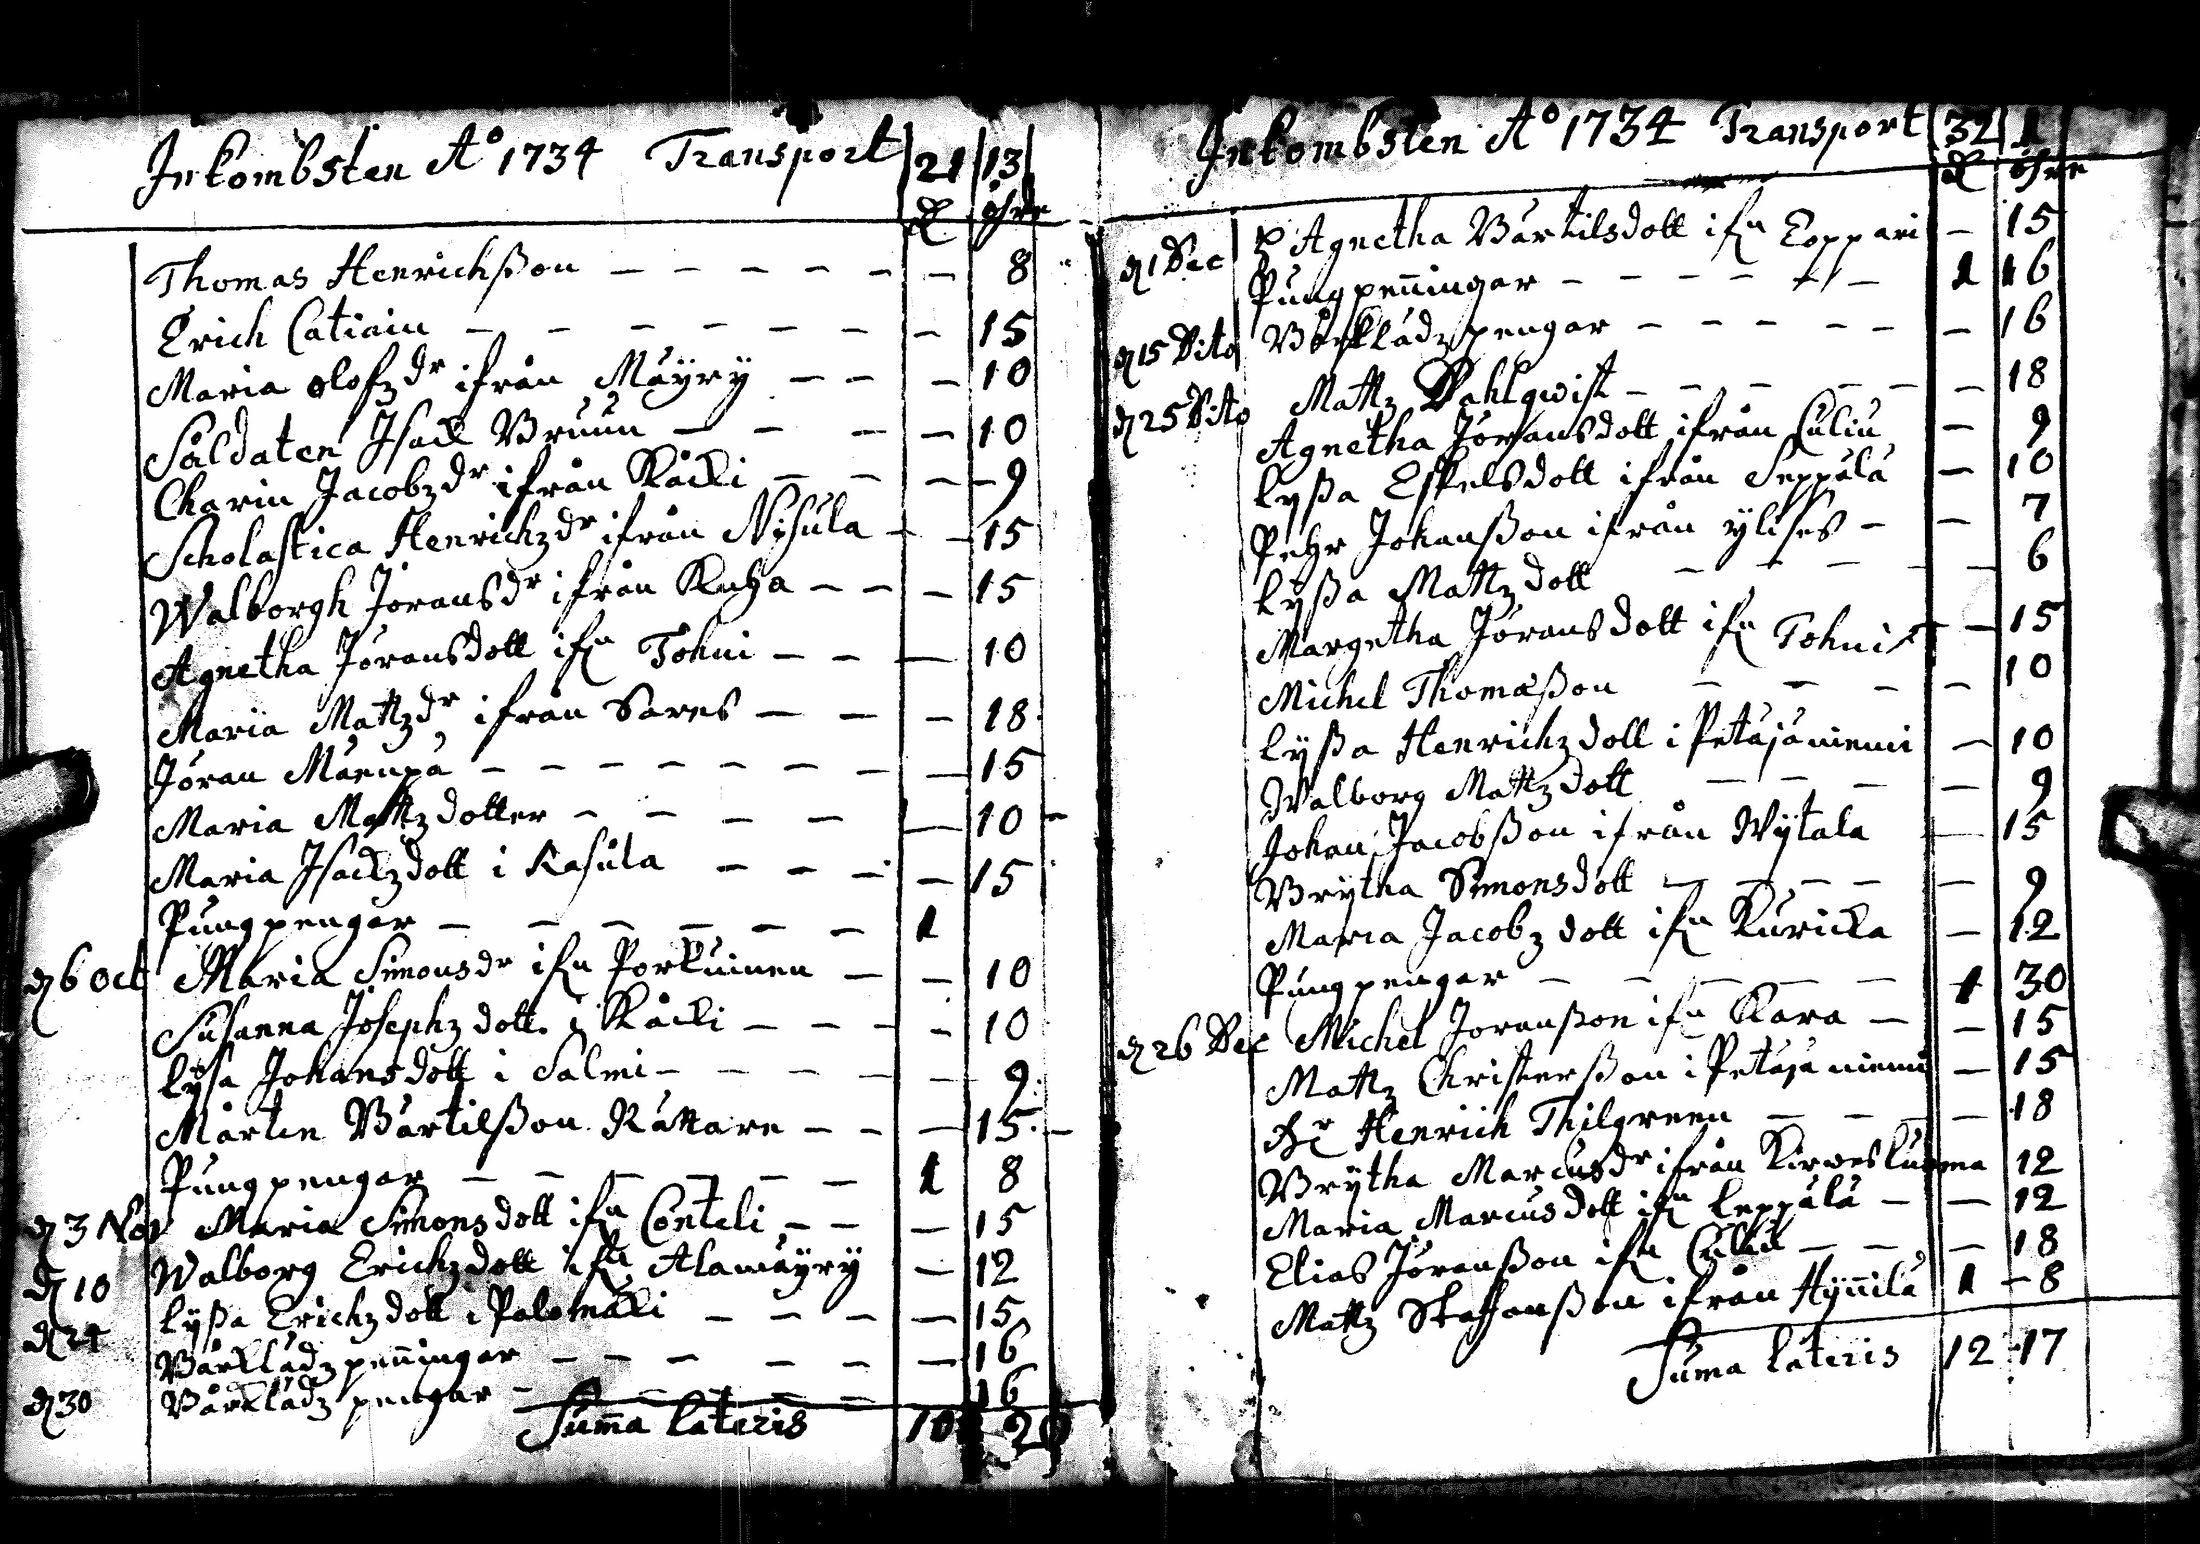 Inkombsten Aº 1734 Transport 21 13
öhre
Thomas Henrichßon – – – – – – 8
Erich Catiain – – – – – – – 15
Maria olofzdr ifrån Mäyry – – – 10
Soldaten Isack Bruun – – – – 10
Charin Jacobzdr ifrån Räcki – – – – 9
Scholastica Henrichzdr ifrån Nisula – – 15
Walborgh Jöransdr ifrån – – – 15
Agnetha Jöransdott ifn Tohni – – – 10
Maria Mattzdr ifrån Sares – – – 18
Jöran Mäenpä – – – – – – – 15
Maria Mattzdotter – – – – – 10
Maria Isackzdott i Kasula – – – – 15
Pungpengar – – – – – – 1
d 6 Oct Maria Simonsdr ifn Porkuinen – – 10
Susanna Josephzdott. i Räcki – – – – 10
Lysa Johansdott i Salmi – – – – – 9
Mårten Bärtilßon Rättare – – – 15
Pungpengar – – – – – – 1 8
d 3 Nov Maria Simonsdott ifn Conteli – – – 15
d 10 Walborg Erichzdott ifn Alamäyry – 12
d 24 Lyßa Erichzdott i Palomäki – – – – 15
Bårklädzpenningar – – – – – – 16
d 30 Bårklädzpengar – – – – – 16
Suma Lateris 10 20
Inkombsten Aº 1734 Transport 32 1
öhre
d 1 Dec Agnetha Bärtilsdott ifn Loppari – 15
Pungpenningar – – – – – – 1 16
d 15 Dito Bårklädzpengar – – – – – – 16
d 25 Dito Mattz Dahlqwist – – – – – – 18
Agnetha Jöransdott ifrån Luliu – 9
Lyßa Eskelsdott ifrån Seppälä – 10
Pehr Johanßon ifrån ylises – – 7
Lyßa Mattzdott – – – – – 6
Margetha Jöransdott ifn Tohni – – 15
Michel Thomæßon – – – – 10
Lyßa Henrichzdott i Petäjäniemi – 10
Walborg Mattzdott – – – – 9
Johan Jacobßon ifrån Wytala – 15
Brytha Simonsdott – – – – – 9
Maria Jacobzdott ifn Kuricka – 12
Pungpengar – – – – – 1 30
d 26 Dec Michel Joranßon ifn Kara – – 15
Mattz Christerßon i Petäjäniemi – 15
Hr Henrich Thilgreen – – – – 18
Brytha Marcusdr ifrån Kirwesluoma 12
Maria Marcusdott ifn Leppälä – – 12
Elias Jöranßon ifn – – – 18
Mattz Staffanßon ifrån Hynnilä 1 – 8
Suma Lateris 12 17